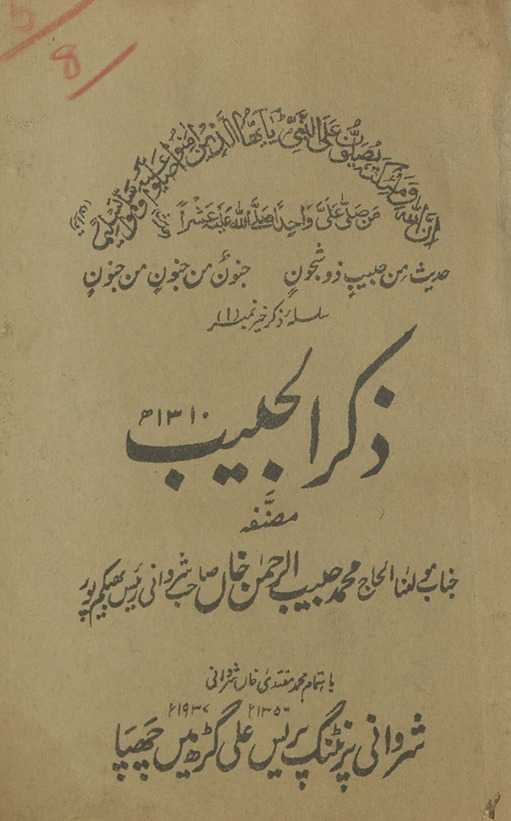 اِنَّ اللّٰهَ وَمَلٰٓئِكَتَهٗ يُصَلُّوْنَ عَلَى النَّبِىِّ يٰٓاَيُّهَا الَّذِيْنَ اٰمَنُوْا صَلُّوْا عَلَيْهِ وَسَلِّمُوْا تَسْلِيْمًا
مَن صَلّٰى عَلَىَّ وَاحِدًا صَلَّى اللّٰهُ عَلَيْهِ عَشْرًا
حدیث من حبیبٍ ذو شجونٍ جنونٌ من جنونٍ من جنونٍ
سلسلۂ ذکر خیر نمبر (۱)
ذکر الحبیب ۱۳۱۰ھ
مصنّفہ
جناب مولٰنا الحاج محمد حبیب الرحمٰن خاں صاحب شروانی رئیس بھیکم پور
باہتمام محمد مقتدیٰ خاں شروانی
۱۳۵۶ ۱۹۳۷ء
شروانی پرنٹنگ پریس علی گڑھ میں چھپا